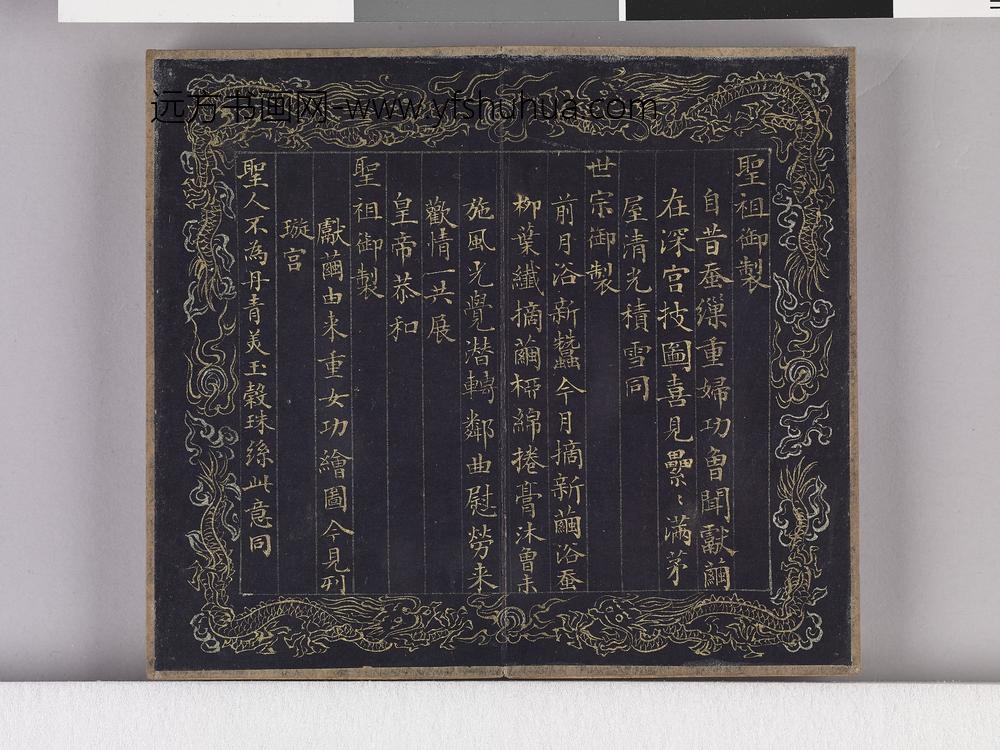 远方书画网-www.yfshuhua.com
聖祖御製
自昔蚕繅重婦功曾聞獻繭
在深宮技圖喜見纍〻滿茅
屋清光積雪同
世宗御製
前月浴新蠶今月摘新繭浴蚕
柳葉纖摘繭桺綿捲膏沐曾未
施風光覺潛轉鄰曲慰勞来
歡情一共展
皇帝恭和
聖祖御製
獻繭由来重女功繪圖今見列
璇宮
聖人不為丹青美玉縠珠絲此意同